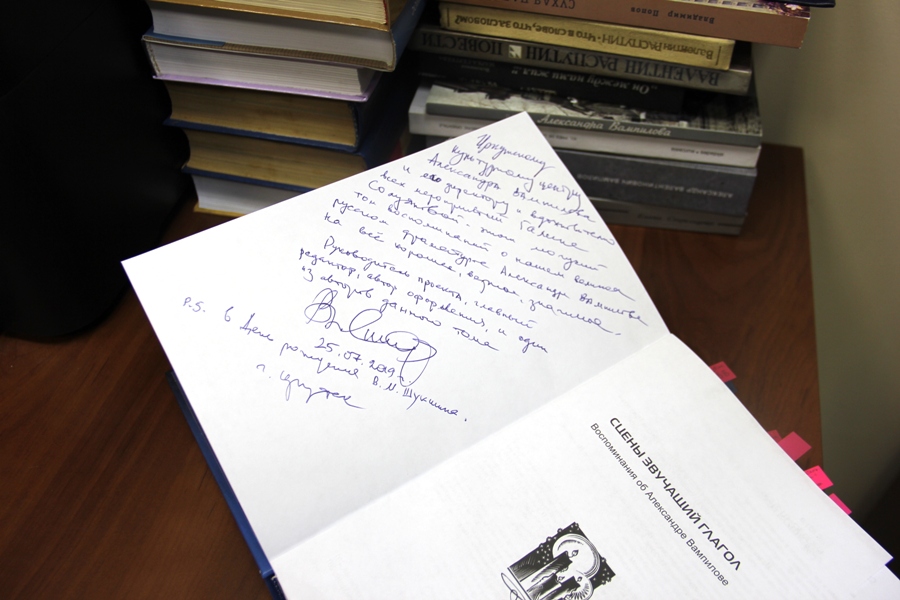 СУХАЯ ПА
Владимир Попов
Валентин РАСПУТИН · Что в слове, что за словом?
ВАЛЕНТИН РАСПУТИН ПОВЕСТИ
"Он между нами жил"
Александра Вампилова
АЛЕКСАНДР ВАЛЕНТИНОВИЧ ВАМПИЛОВ
Иркутскому
культурному центру
Александра Вампилова
и его директору и вдохновителю
всех мероприятий Галине
Солуяновой - этот могучий
том воспоминаний о нашем великом
русском драматурге Александре Вампилове
на всё хорошее, важное, значимое.
Руководитель проекта, главный
редактор, автор оформления, и один
из авторов данного тома
25.07.2019 г.
P.S. в День рождения В.М. Шукшина.
г. Иркутск
СЦЕНЫ ЗВУЧАЩИЙ ГЛАГОЛ
Воспоминания об Александре Вампилове